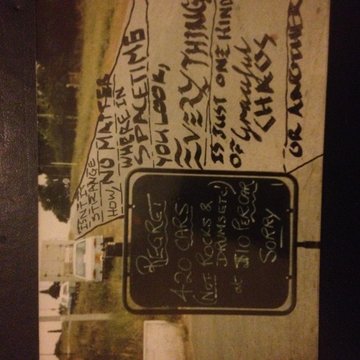 ISN'T IT
STRANGE
HOW, NO MATTER
WHERE IN
SPACETIME
YOU LOOK,
EVERYTHING
IS JUST ONE KIND
OF Graceful
CHAOS
OR ANOTHER
REGRET
420 CARS
(NOT ROCKS &
DRUMS ETC!)
at $10 PER CAR
SORRY